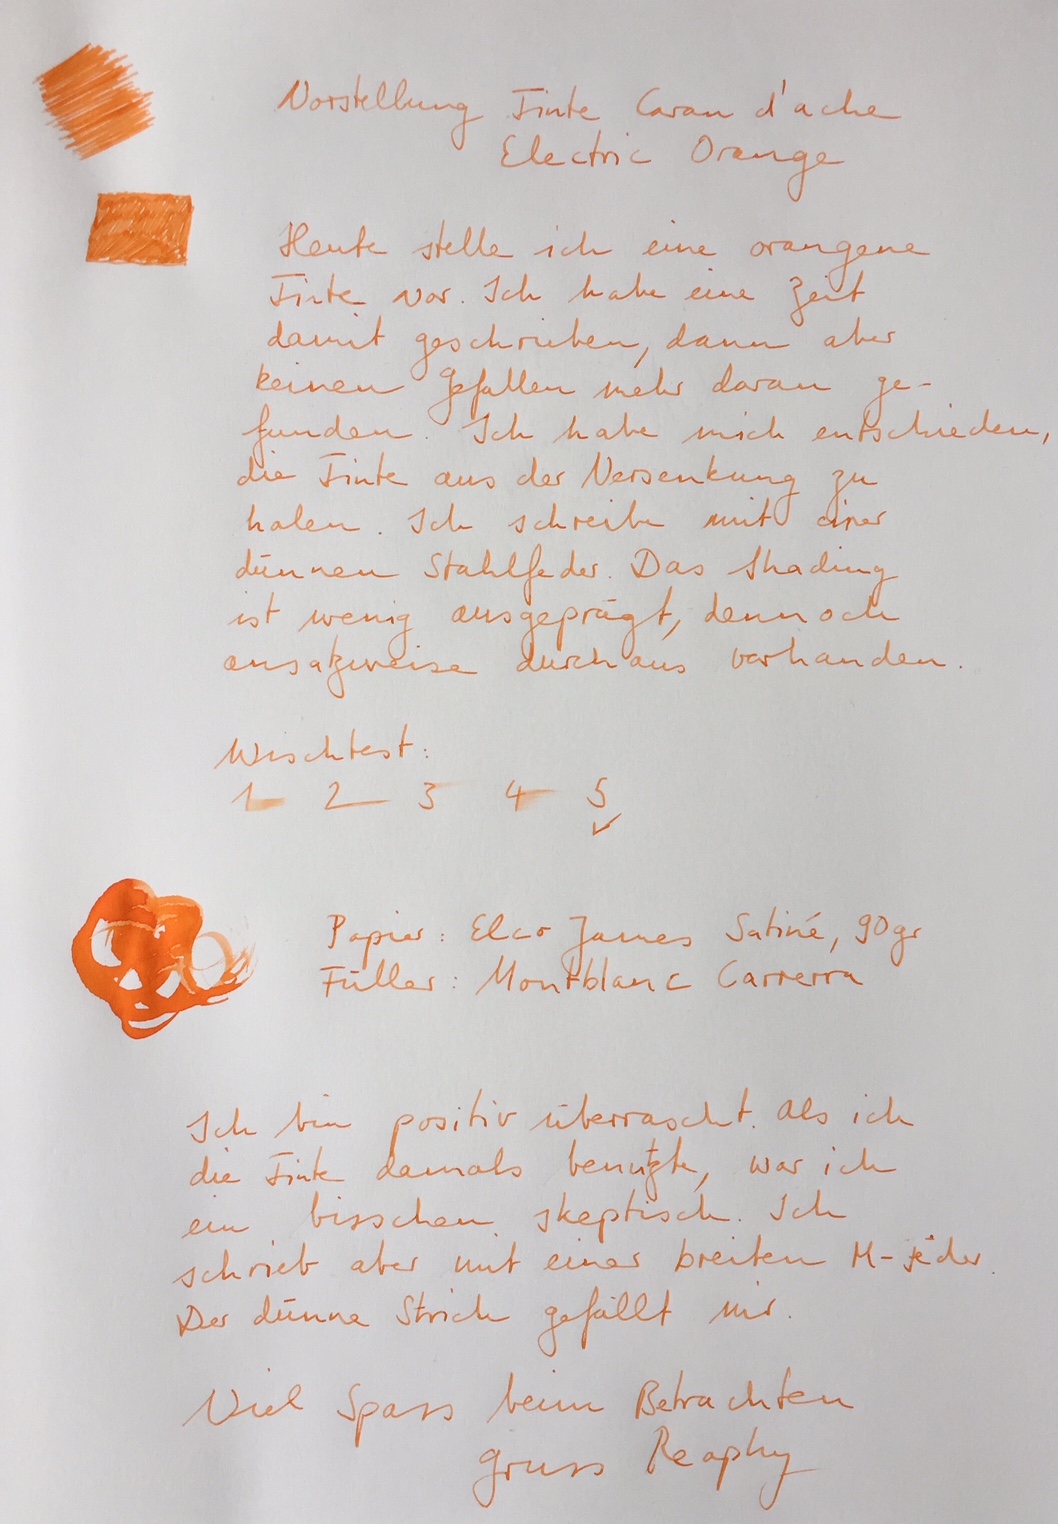 Vorstellung Tinte Caran d'ache
Electric Orange
Heute stelle ich eine orangene
Tinte vor. Ich habe eine Zeit
damit geschrieben, dann aber
keinen Gefallen mehr daran ge-
funden. Ich habe mich entschieden,
die Tinte aus der Versenkung zu
holen. Ich schreibe mit einer
dünnen Stahlfeder. Das Shading
ist wenig ausgeprägt, dennoch
ansatzweise durchaus vorhanden.
Wischtest:
1 2 3 4 5
✓
Papier: Elco James Satiné, 90gr
Füller: Montblanc Carrerra
Ich bin positiv überrascht. Als ich
die Tinte damals benutzte, war ich
ein bisschen skeptisch. Ich
schrieb aber mit einer breiten M-Feder.
Der dünne Strich gefällt mir.
Viel Spass beim Betrachten
Gruss Reaphy